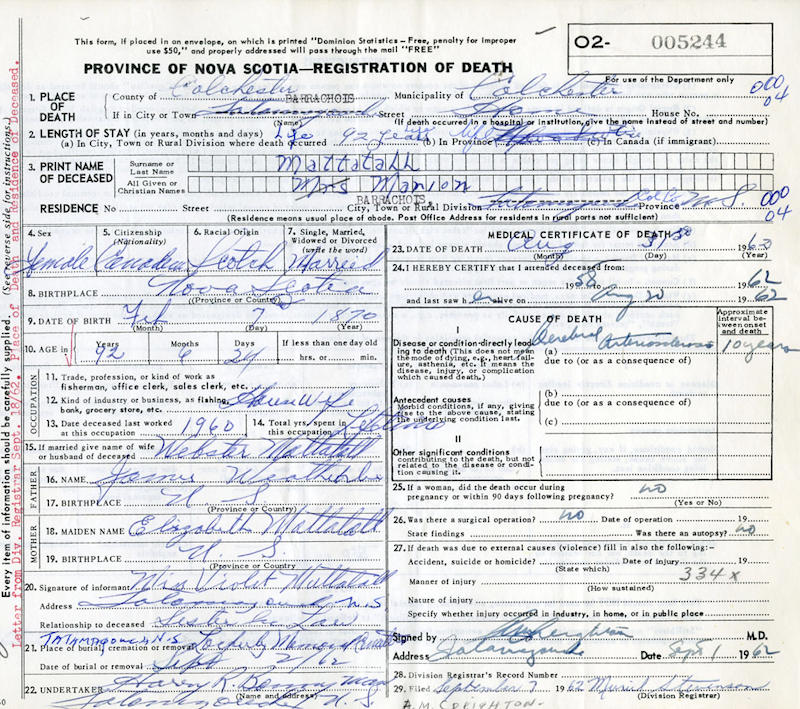 This form, if placed in an envelope, on which is printed "Dominion Statistics - Free, penalty for improper
use $50," and properly addressed will pass through the mail "FREE"
O2- 005244
PROVINCE OF NOVA SCOTIA—REGISTRATION OF DEATH
For use of the Department only
000
04
1. PLACE OF DEATH
County of Colchester Municipality of Colchester
BARRACHOIS
If in City or Town Street Home House No.
(Name) (If death occurred in a hospital or institution, give the name instead of street and number)
2. LENGTH OF STAY (in years, months and days)
(a) In City, Town or Rural Division where death occurred Life 92 years (b) In Province Life (c) In Canada (if immigrant)
3. PRINT NAME OF DECEASED
Surname or Last Name Mattatall
All Given or Christian Names Mrs Marion
BARRACHOIS,
RESIDENCE No Street City, Town or Rural Division Col. Co. Province N.S.
000
04
(Residence means usual place of abode. Post Office Address for residents in rural parts not sufficient)
4. Sex Female
5. Citizenship (Nationality) Canadian
6. Racial Origin Scotch
7. Single, Married, Widowed or Divorced (write the word) Married
8. BIRTHPLACE Nova Scotia
(Province or Country)
9. DATE OF BIRTH Feb 7 1870
(Month) (Day) (Year)
10. AGE in Years 92 Months 6 Days 24 If less than one day old
hrs. or min.
OCCUPATION
11. Trade, profession, or kind of work as
fisherman, office clerk, sales clerk, etc.
12. Kind of industry or business, as fishing,
bank, grocery store, etc. House Wife
13. Date deceased last worked
at this occupation 1960
14. Total yrs. spent in
this occupation Lifetime
15. If married give name of wife
or husband of deceased Webster Mattatall
FATHER
16. NAME James
17. BIRTHPLACE N S
(Province or Country)
MOTHER
18. MAIDEN NAME Elizabeth Mattatall
19. BIRTHPLACE N S
(Province or Country)
20. Signature of informant Miss Violet Mattatall
Address Tatamagouche N S
Relationship to deceased Sister in Law
TATAMAGOUCHE N.S
21. Place of burial cremation or removal
Date of burial or removal Sept 2/62
22. UNDERTAKER Harry R.
(Name and address)
Tatamagouche N. S.
MEDICAL CERTIFICATE OF DEATH
23. DATE OF DEATH Aug 31 1962
(Month) (Day) (Year)
24. I HEREBY CERTIFY that I attended deceased from:
1958 to 1962
and last saw her alive on Aug 20 1962
CAUSE OF DEATH
Approximate interval between onset and death
I
Disease or condition-directly leading to death (This does not mean the mode of dying, e.g., heart failure, asthenia, etc. It means the disease, injury, or complication which caused death.)
(a) Cerebral Arteriosclerosis 10 years
due to (or as a consequence of)
Antecedent causes
Morbid conditions, if any, giving rise to the above cause, stating the underlying condition last.
(b)
due to (or as a consequence of)
(c)
II
Other significant conditions
contributing to the death, but not related to the disease or condition causing it.
25. If a woman, did the death occur during
pregnancy or within 90 days following pregnancy? no
(Yes or No)
26. Was there a surgical operation? no Date of operation 19
State findings Was there an autopsy? no
27. If death was due to external causes (violence) fill in also the following:-
Accident, suicide or homicide? Date of injury 19
(State which)
334 x
Manner of injury
(How sustained)
Nature of injury
Specify whether injury occurred in industry, in home, or in public place
Signed by Creighton M.D.
Address Tatamagouche Date Sept 1 1962
28. Division Registrar's Record Number
29. Filed September 7 1962 Muriel Stevenson
(Division Registrar)
A.M. CREIGHTON.
Every item of information should be carefully supplied. (See reverse side for instructions.)
Letter from Div. Registrar Sept. 18/62. Place of Death and Residence of Deceased.